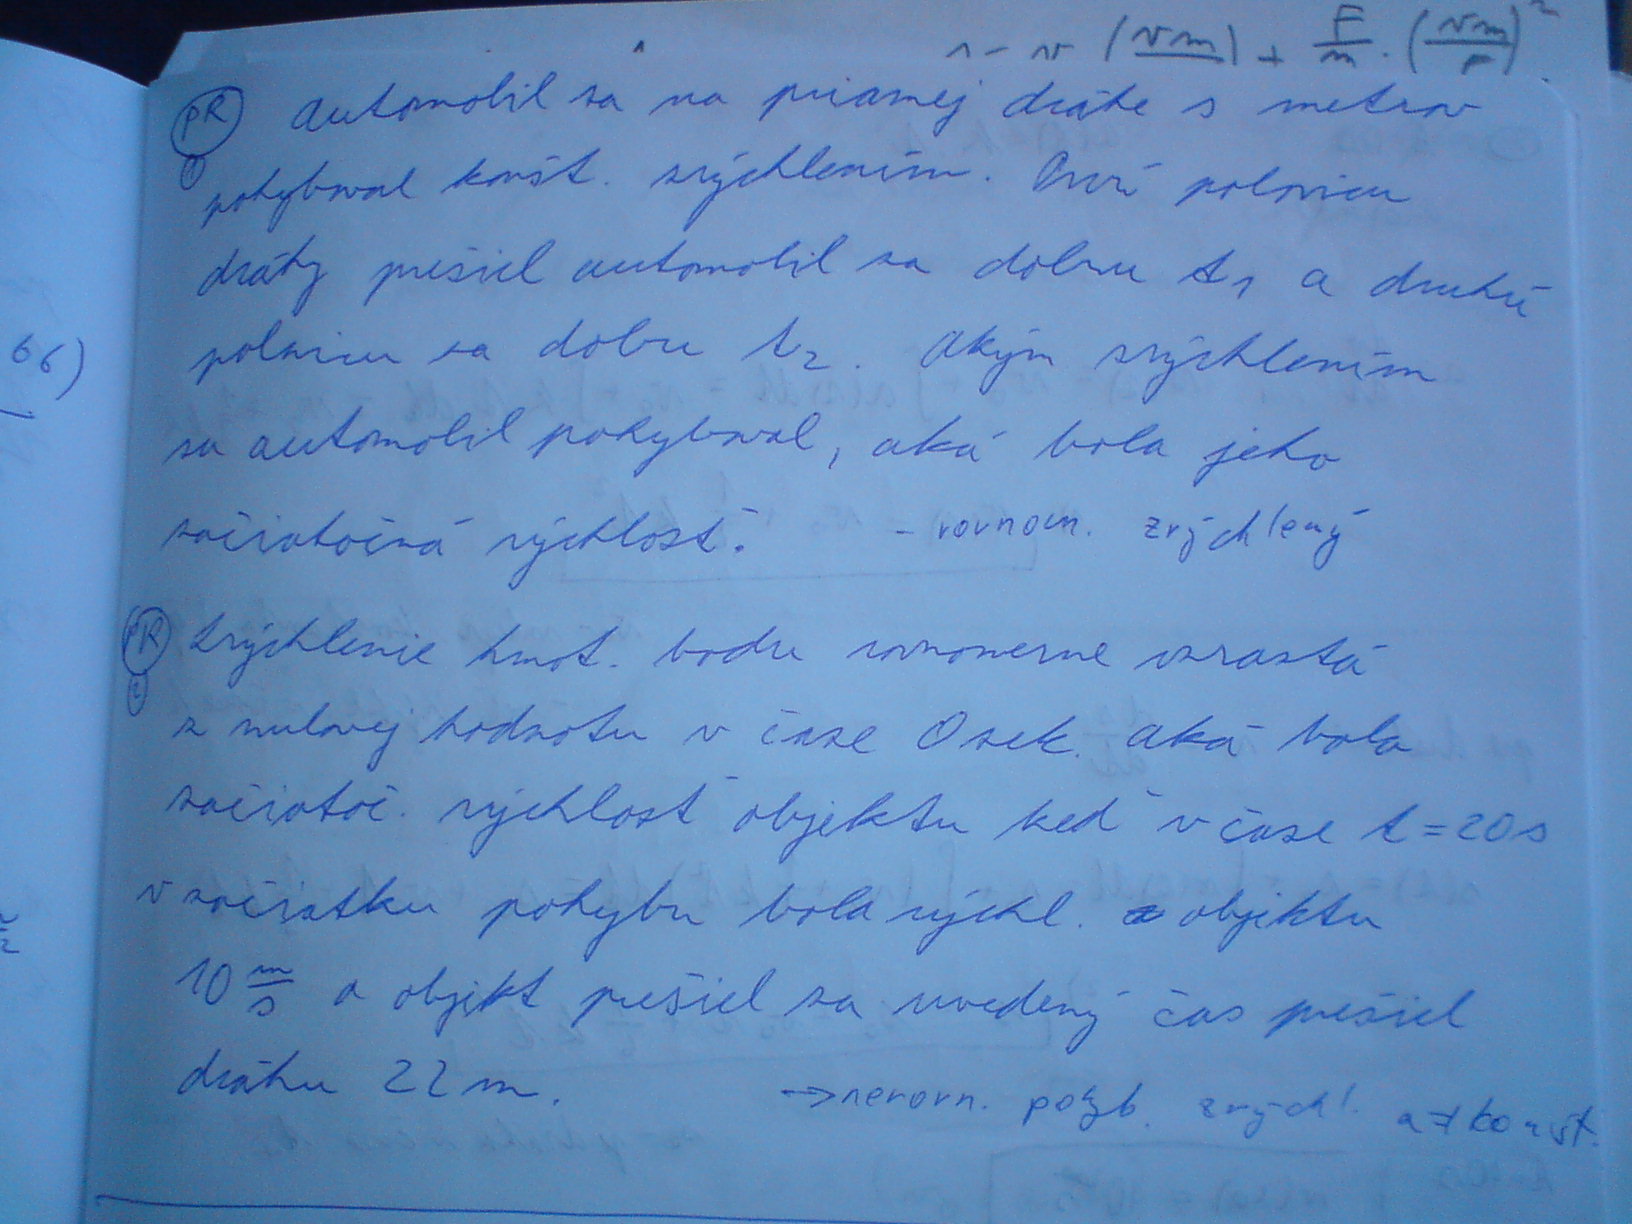 s = v (vm) + F/m · (vm/F)²
PR Automobil sa na priamej dráhe s metrov
1 pohyboval konšt. zrýchlením. Prvú polovicu
dráhy prešiel automobil za dobu t₁ a druhú
polovicu za dobu t₂. Akým zrýchlením
sa automobil pohyboval, aká bola jeho
začiatočná rýchlosť. - rovnom. zrýchlený
66)
PR Zrýchlenie hmot. bodu rovnomerne vzrastá
2 z nulovej hodnoty v čase 0 sek. Aká bola
začiatoč. rýchlosť objektu keď v čase t = 20 s
v začiatku pohybu bola rýchl. objektu
10 m/s a objekt prešiel za uvedený čas prešiel
dráhu 22 m. → nerovn. pohyb. zrýchl. a ≠ konšt.